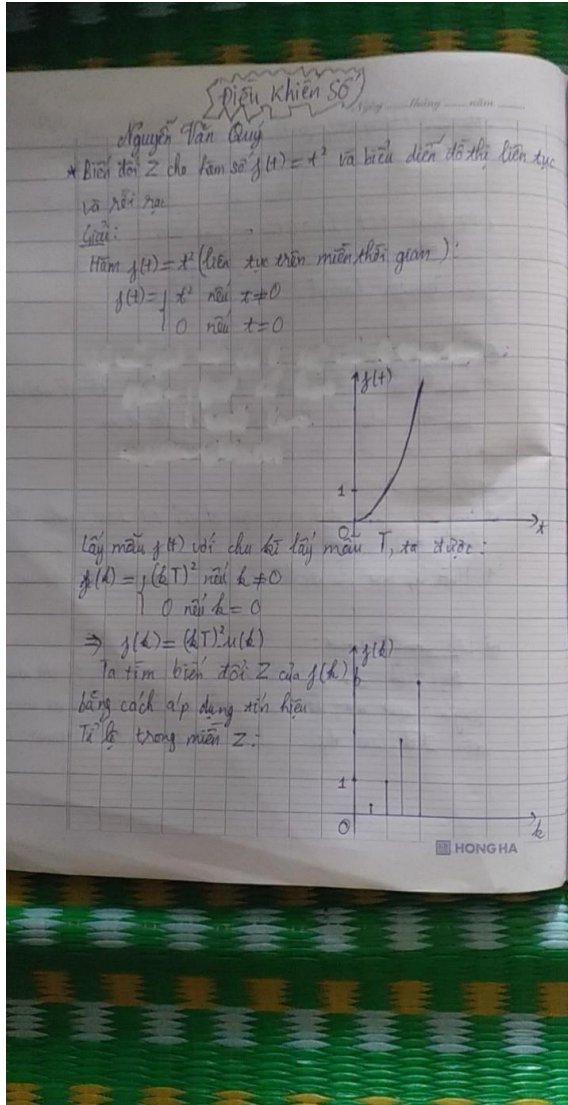 Điều Khiển Số
Ngày ...... tháng ...... năm ......
Nguyễn Văn Quý
* Biến đổi Z cho hàm số f(t) = t² và biểu diễn đồ thị liên tục
và rời rạc
Giải:
Hàm f(t) = t² (liên tục trên miền thời gian):
f(t) = { t² nếu t ≠ 0
0 nếu t = 0
f(t)
1
0
t
Lấy mẫu f(t) với chu kì lấy mẫu T, ta được:
f(k) = { (kT)² nếu k ≠ 0
0 nếu k = 0
⇒ f(k) = (kT)².u(k)
Ta tìm biến đổi Z của f(k)
bằng cách áp dụng tín hiệu
Tỉ lệ trong miền Z:
f(k)
1
0
k
HONG HA